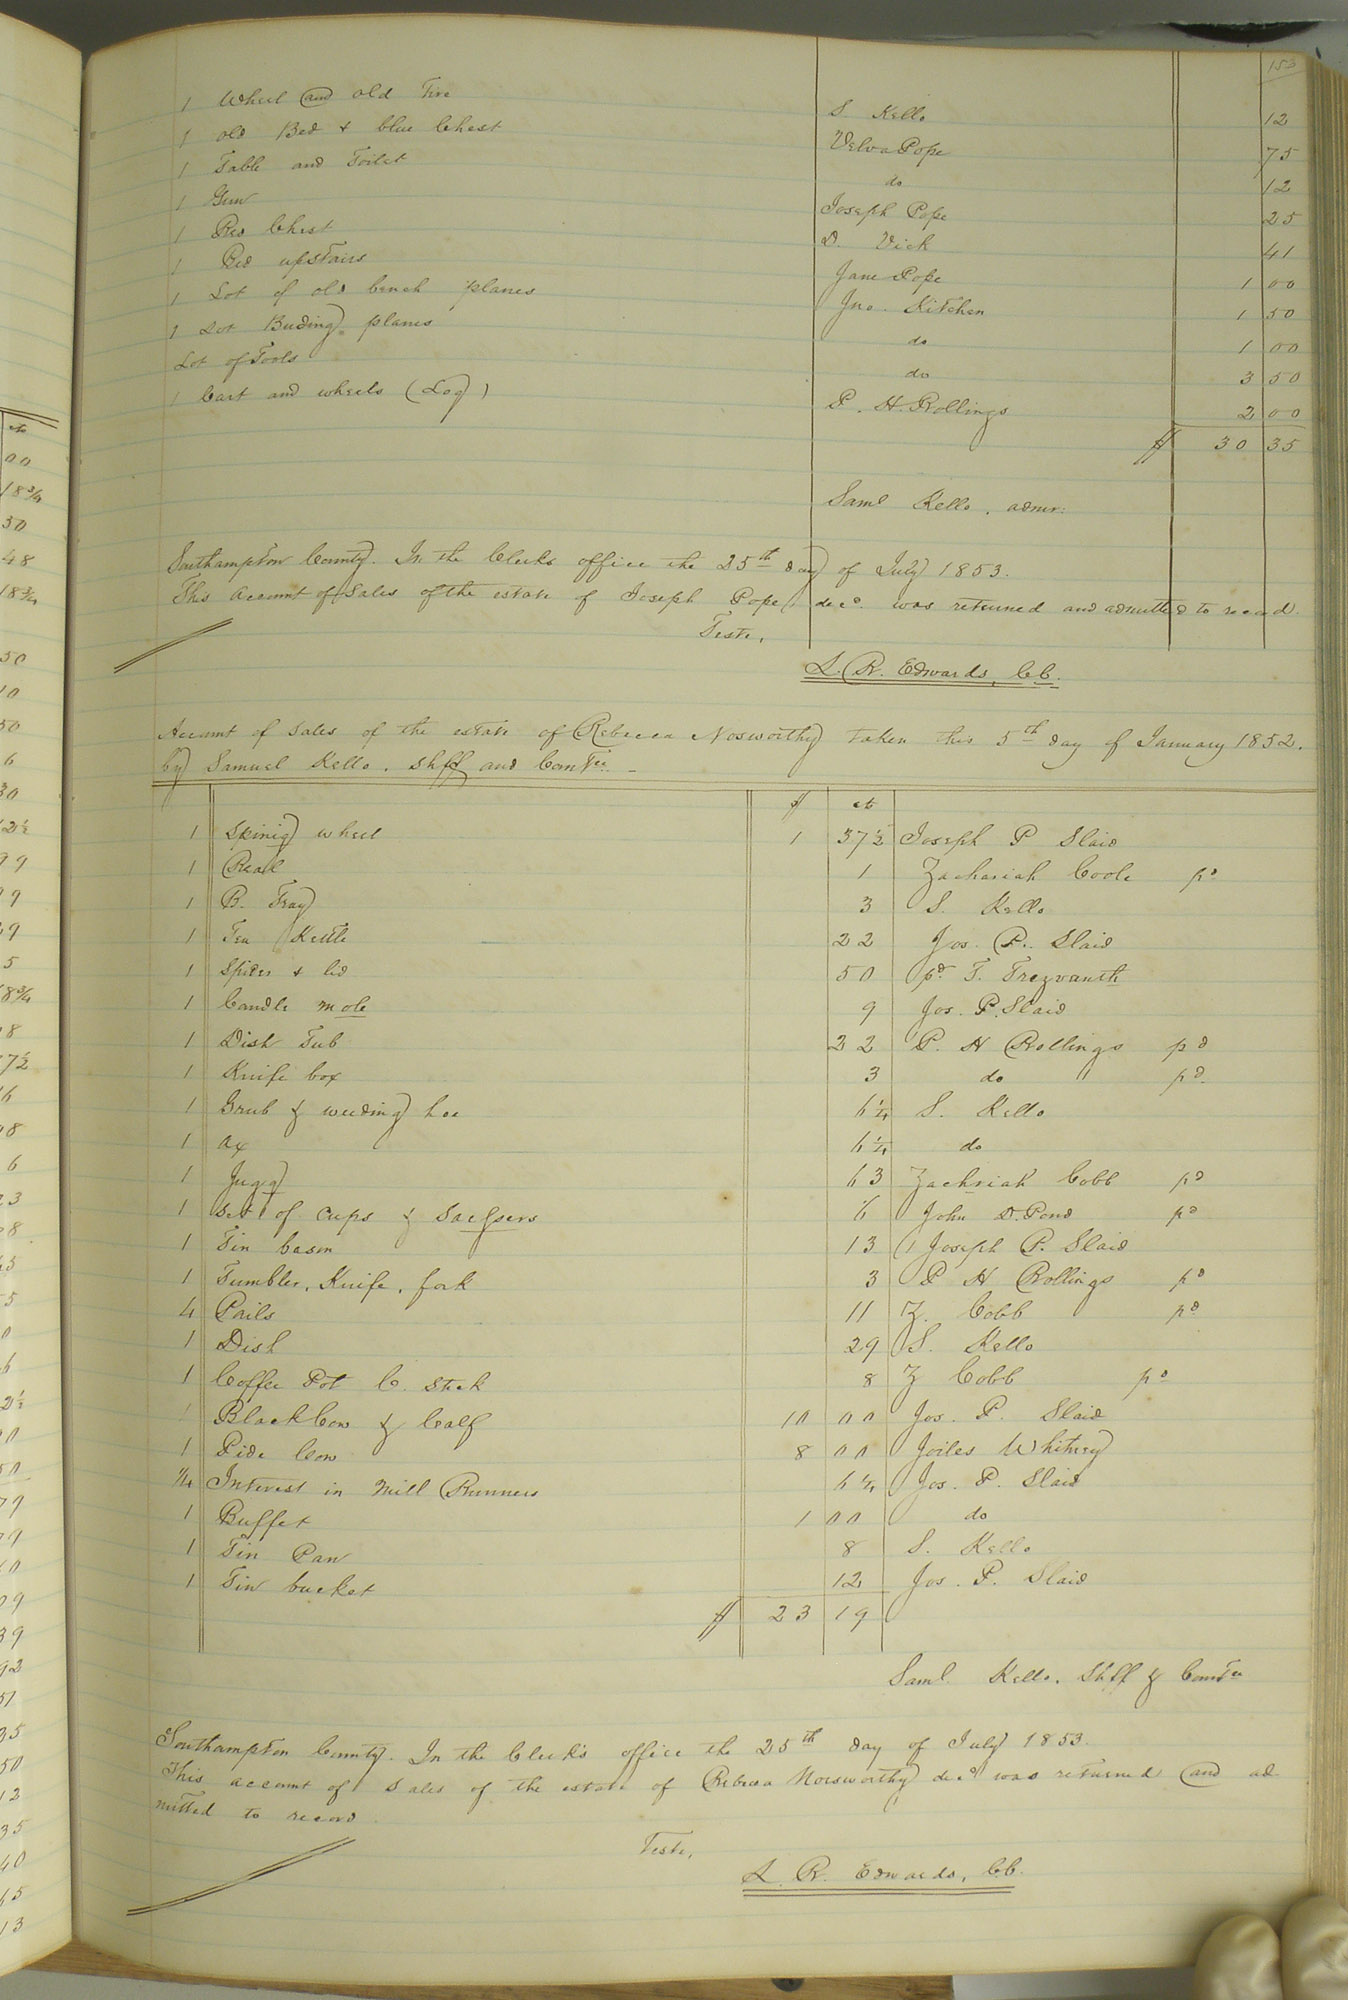 153
1 Wheel and old Tire S. Kello 12
1 old Bed & blue Chest Velva Pope 75
1 Table and Toilet do 12
1 Gun Joseph Pope 25
1 Red Chest D. Vick 41
1 Bed upstairs Jane Pope 1 00
1 Lot of old bench planes Jno. Kitchen 1 50
1 Lot Buding planes do 1 00
Lot of Tools do 3 50
1 Cart and wheels (Log) P. H. Rollings 2 00
$ 30 35
Saml Kello, admr:
Southampton County. In the Clerks office the 25th day of July 1853.
This Account of Sales of the estate of Joseph Pope decd. was returned and admitted to record.
Teste,
L. R. Edwards, C.C.
Account of Sales of the estate of Rebecca Nosworthy taken this 5th day of January 1852.
by Samuel Kello. Shff and Comtee
$ cts
1 Spinig wheel 1 37½ Joseph P Slaid
1 Reall 1 Zachariah Coole pd
1 B. Tray 3 S. Kello
1 Tea Kettle 22 Jos. P. Slaid
1 Spider & lid 50 pd. T. Trezvanth
1 Candle mole 9 Jos. P. Slaid
1 Dish Tub 22 P. H Rollings pd
1 Knife box 3 do " pd.
1 Grub & weeding hoe 6¼ S. Kello
1 ax 6¼ do
1 Jugg 63 Zachriah Cobb pd
1 Set of Cups & Saesers 6 John D. Pond pd
1 Tin basin 13 Joseph P. Slaid
1 Tumbler, Knife, fork 3 P H Rollings pd
4 Pails 11 Z. Cobb pd
1 Dish 29 S. Kello
1 Coffee Pot C. Stick 8 Z Cobb pd
1 Black Cow & Calf 10 00 Jos. P. Slaid
1 Pide Cow 8 00 Joiles Whitney
¼ Interest in Mill Runners 6¼ Jos. P. Slaid
1 Buffet 1 00 do
1 Tin Pan 8 S. Kello
1 Tin bucket 12 Jos. P. Slaid
$ 23 19
Saml. Kello. Shff & Comtee
Southampton County. In the Clerk's office the 25th day of July 1853.
This account of Sales of the estate of Rebecca Norsworthy decd was returned and ad
mitted to record
Teste,
L. R. Edwards, C.C.